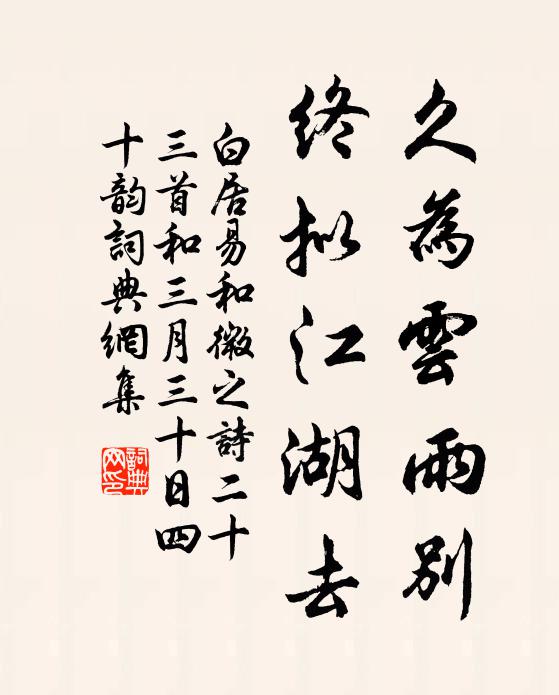 久為雲雨別
終拟江湖去
白居易和微之詩二十
三首和三月三十日四
十韵詞典網集
詞典
网印